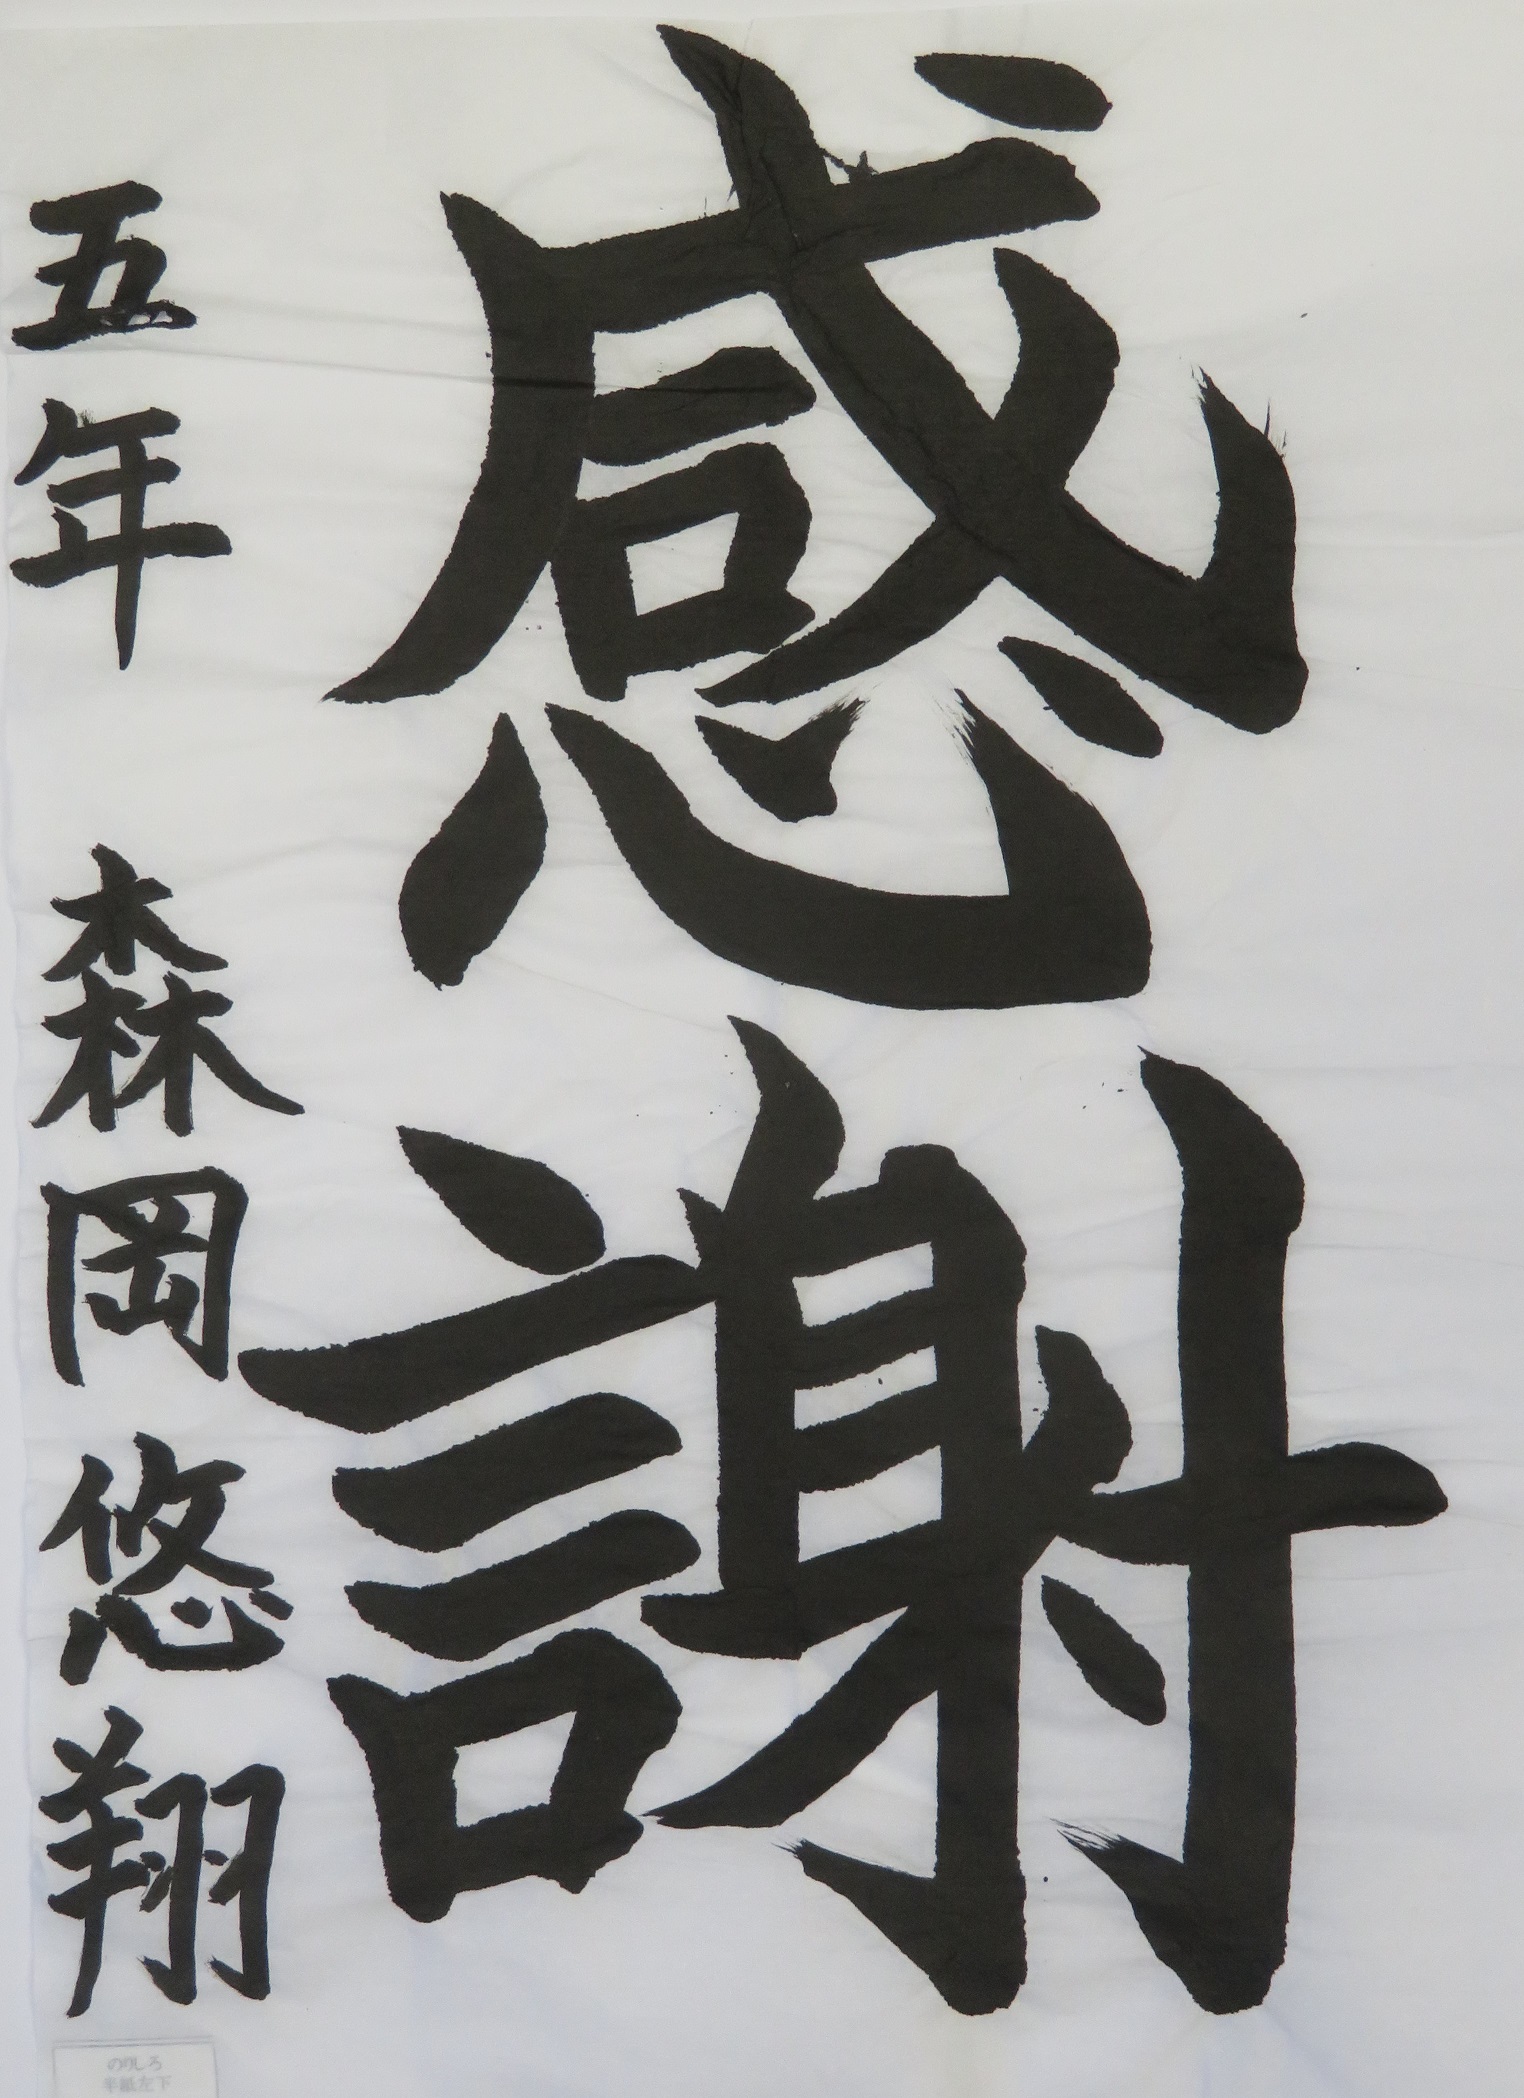 感謝
五年 森岡悠翔
のりしろ
半紙左下